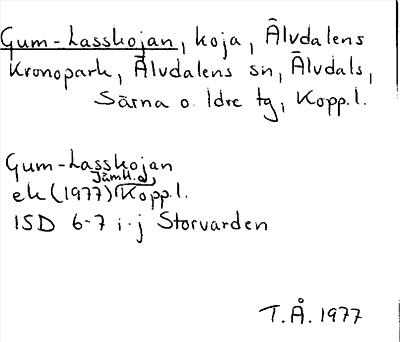 Gum-Lasskojan, koja, Älvdalens
Kronopark, Älvdalens sn, Älvdals,
Särna o. Idre tg, Kopp.l.
Gum-Lasskojan
Jämtl. o.
ek (1977) Kopp.l.
ISD 6-7 i-j Storvarden
T.Å. 1977